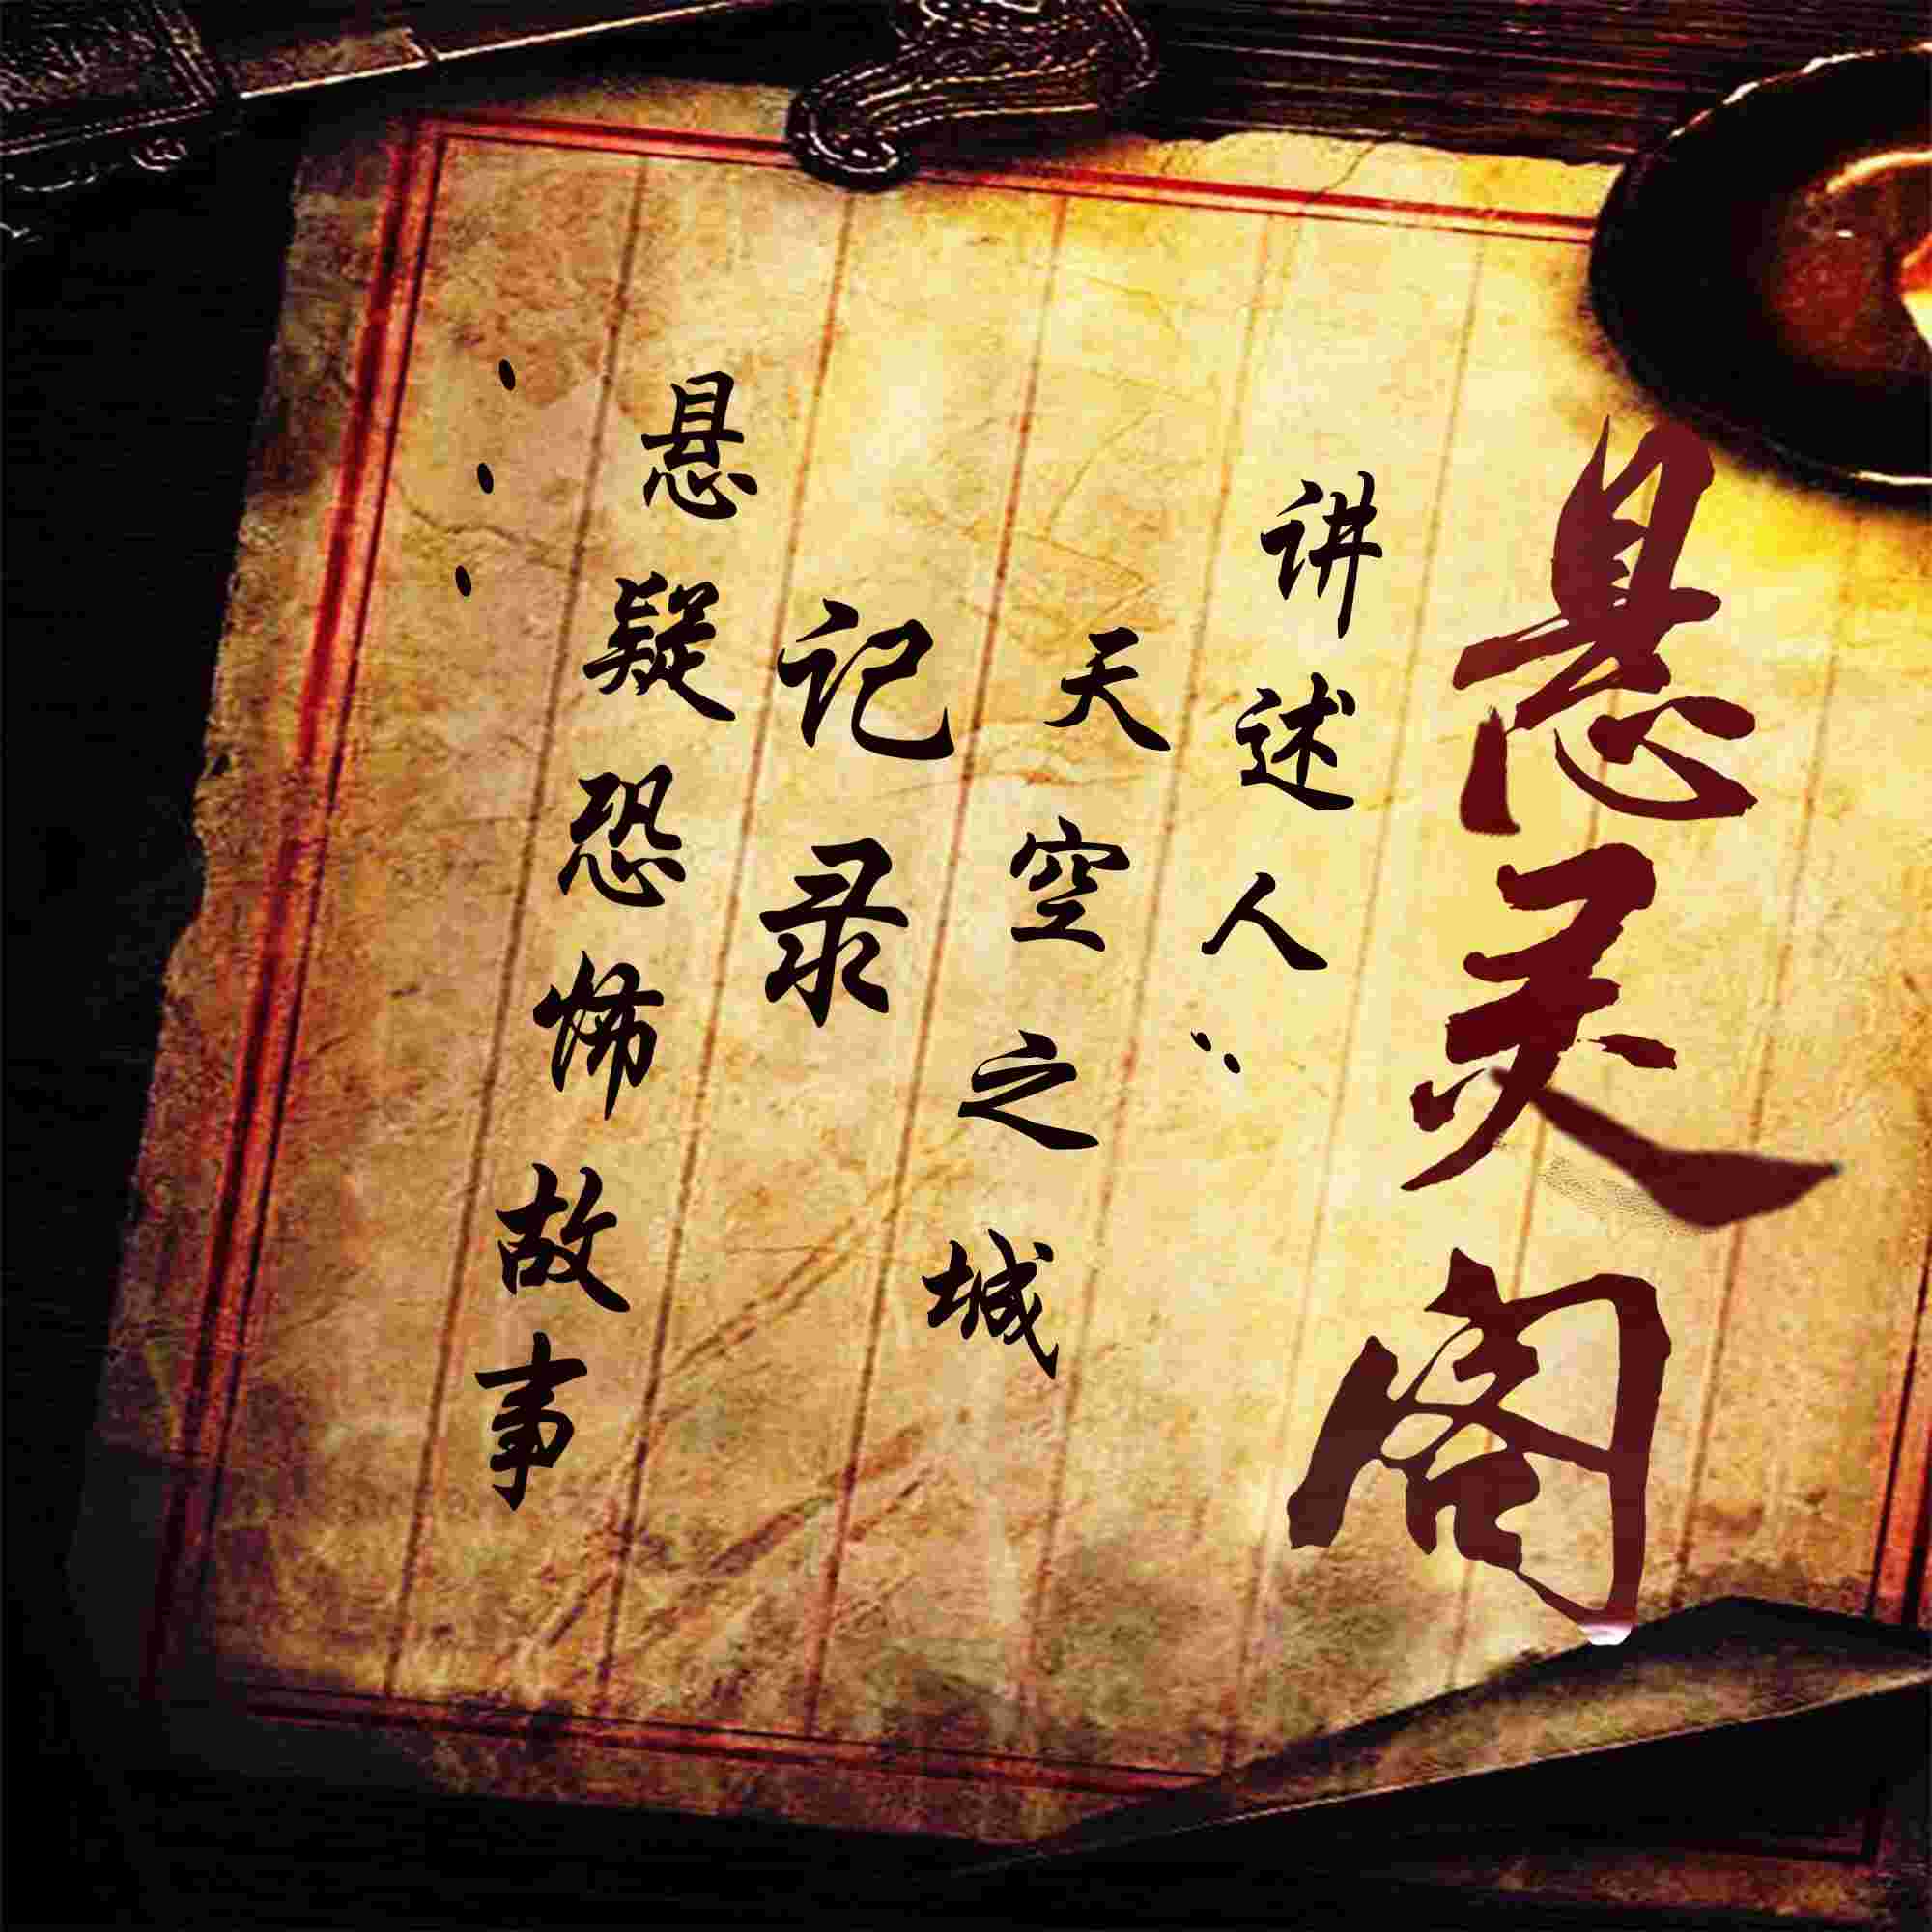 悬灵阁
讲述人:
天空之城
记录
悬疑恐怖故事
...